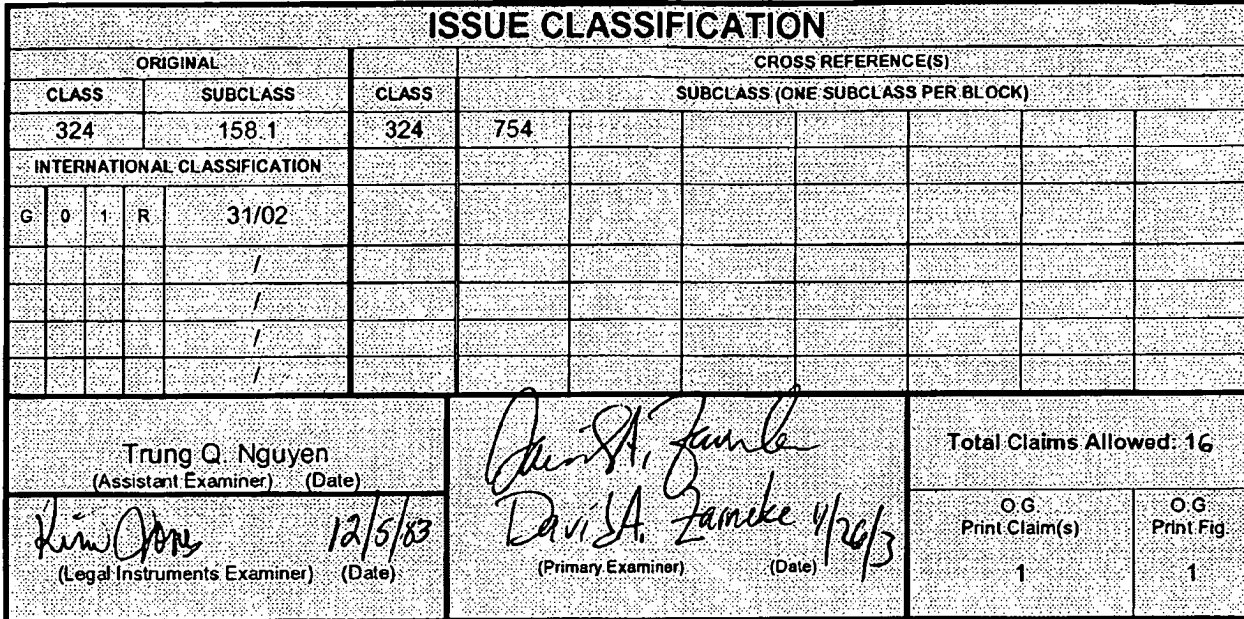 ISSUE CLASSIFICATION
ORIGINAL CROSS REFERENCE(S)
CLASS SUBCLASS CLASS SUBCLASS (ONE SUBCLASS PER BLOCK)
324 158.1 324 754
INTERNATIONAL CLASSIFICATION
G 0 1 R 31/02
/
/
/
/
Trung Q. Nguyen
(Assistant Examiner) (Date)
Kim Jones 12/5/03
(Legal Instruments Examiner) (Date)
David A. Zarneke
(Primary Examiner) (Date)
Total Claims Allowed: 16
O.G. Print Claim(s)
1
O.G. Print Fig.
1